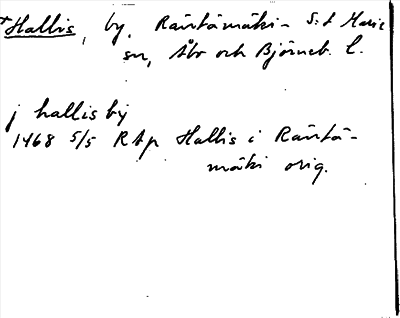 *Hallis, by. Räntämäki - S:t Marie
sn, Åbo och Björneb. l.
j hallis by
1468 5/5 RAp Hallis i Räntä-
mäki orig.